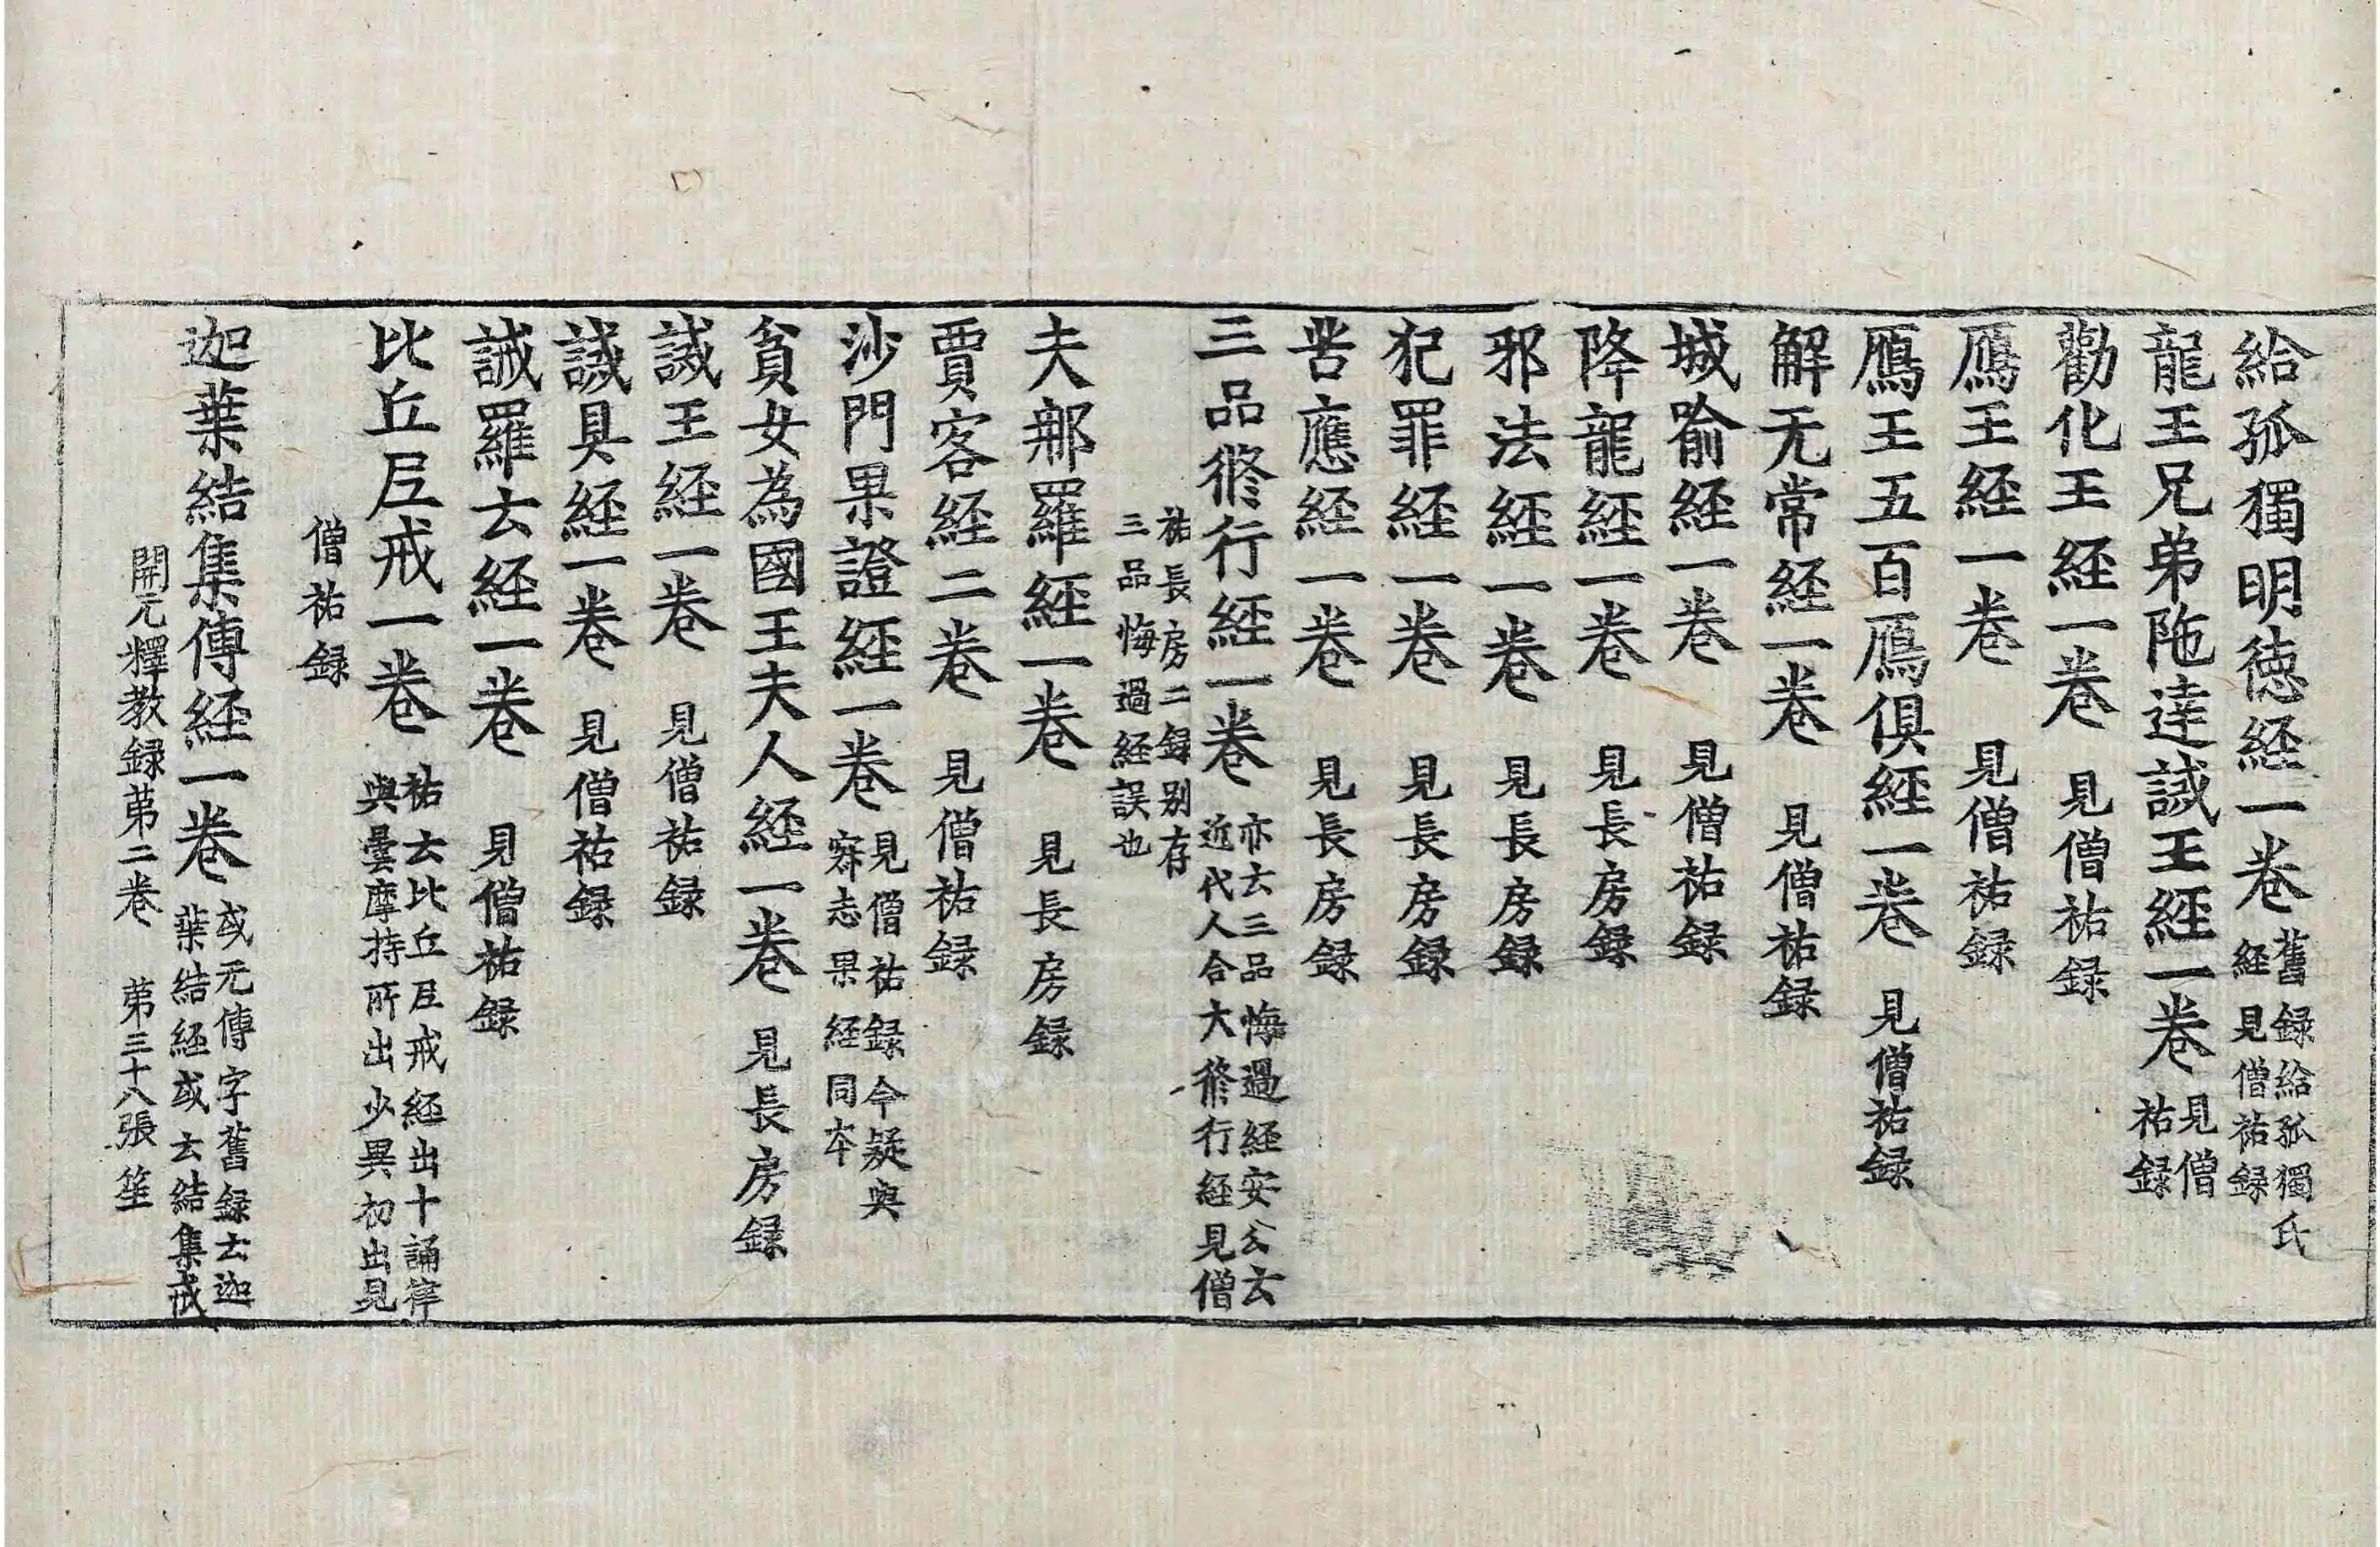 給孤獨明德経一卷舊録給孤獨氏
経見僧祐録
龍王兄弟陁達誡王経一卷見僧
祐録
勸化王経一卷見僧祐録
鴈王経一卷見僧祐録
鴈王五百鴈俱経一卷見僧祐録
解无常経一卷見僧祐録
城喻経一卷見僧祐録
降龍経一卷見長房録
邪法経一卷見長房録
犯罪経一卷見長房録
苦應経一卷見長房録
三品修行経一卷亦云三品悔過経安公云
近代人合大修行経見僧
祐長房二録别存
三品悔過経誤也
夫那羅経一卷見長房録
賈客経二卷見僧祐録
沙門果證経一卷見僧祐録今疑與
寂志果経同本
貧女為國王夫人経一卷見長房録
誡王経一卷見僧祐録
誡具経一卷見僧祐録
誡羅云経一卷見僧祐録
比丘尼戒一卷祐云比丘尼戒経出十誦律
與曇摩持所出少異初出見
僧祐録
迦葉結集傳経一卷或元傳字舊録云迦
葉結経或云結集戒
開元釋教録苐二卷 苐三十八張 笙